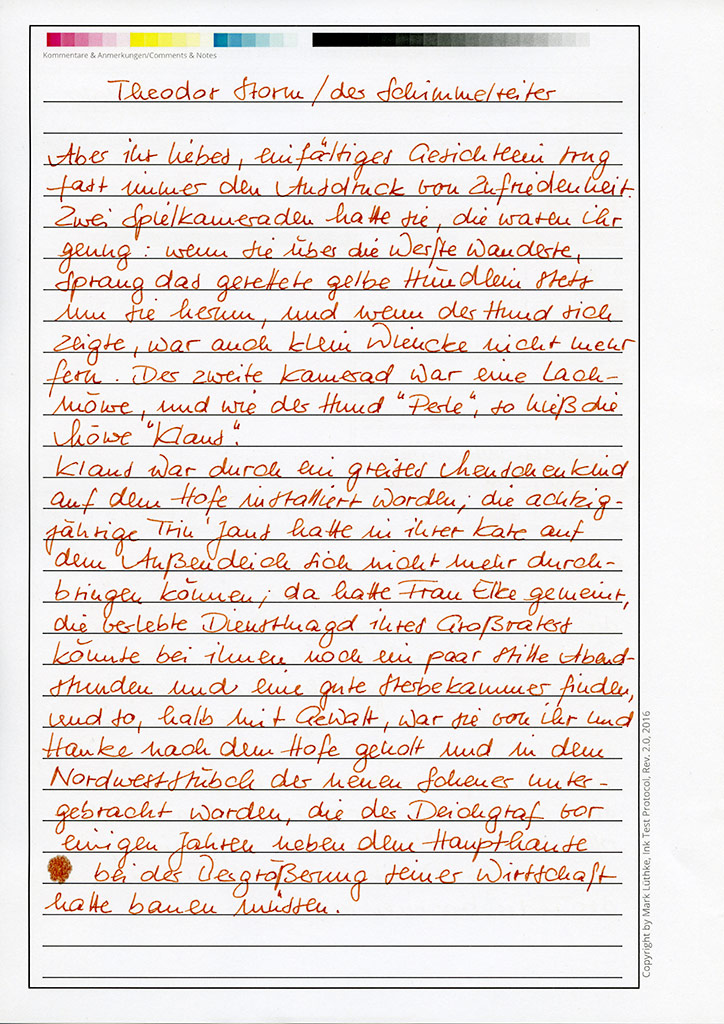 Kommentare & Anmerkungen/Comments & Notes
Theodor Storm / der Schimmelreiter
Aber ihr liebes, einfältiges Gesichtlein trug
fast immer den Ausdruck von Zufriedenheit.
Zwei Spielkameraden hatte sie, die waren ihr
genug: wenn sie über die Werfte wanderte,
sprang das gerettete gelbe Hündlein stets
um sie herum, und wenn der Hund sich
zeigte, war auch klein Wiencke nicht mehr
fern. Der zweite Kamerad war eine Lach-
möwe, und wie der Hund "Perle", so hieß die
Möwe "Klaus".
Klaus war durch ein greises Menschenkind
auf dem Hofe installiert worden; die achtzig-
jährige Trin' Jans hatte in ihrer Kate auf
dem Außendeich sich nicht mehr durch-
bringen können; da hatte Frau Elke gemeint,
die verlebte Dienstmagd ihres Großvaters
könnte bei ihnen noch ein paar stille Abend-
stunden und eine gute Sterbekammer finden,
und so, halb mit Gewalt, war sie von ihr und
Hauke nach dem Hofe geholt und in dem
Nordweststübch der neuen Scheuer unter-
gebracht worden, die der Deichgraf vor
einigen Jahren neben dem Haupthause
bei der Vergrößerung seiner Wirtschaft
hatte bauen müssen.
Copyright by Mark Lüthke, Ink Test Protocol, Rev. 2.0, 2016